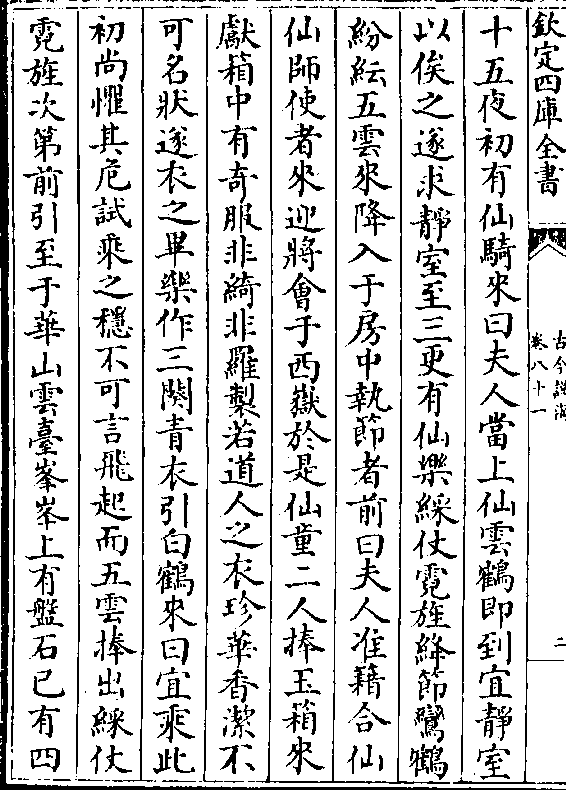 欽定四庫全書
古今說海
卷八十一
二
十五夜初有仙騎來曰夫人當上仙雲鶴即到宜靜室
以俟之遂求靜室至三更有仙樂綵仗霓旌絳節鸞鶴
紛紜五雲來降入于房中執節者前曰夫人准籍合仙
仙師使者來迎將會于西嶽於是仙童二人捧玉箱來
獻箱中有奇服非綺非羅製若道人之衣珍華香潔不
可名狀遂衣之畢樂作三闋青衣引白鶴來曰宜乘此
初尚懼其危試乘之穩不可言飛起而五雲捧出綵仗
霓旌次第前引至于華山雲臺峯峯上有盤石已有四